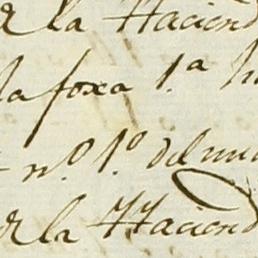 de la Haciend
la foxa 1.ª h
n.º 1.º del mu
de la Haciend